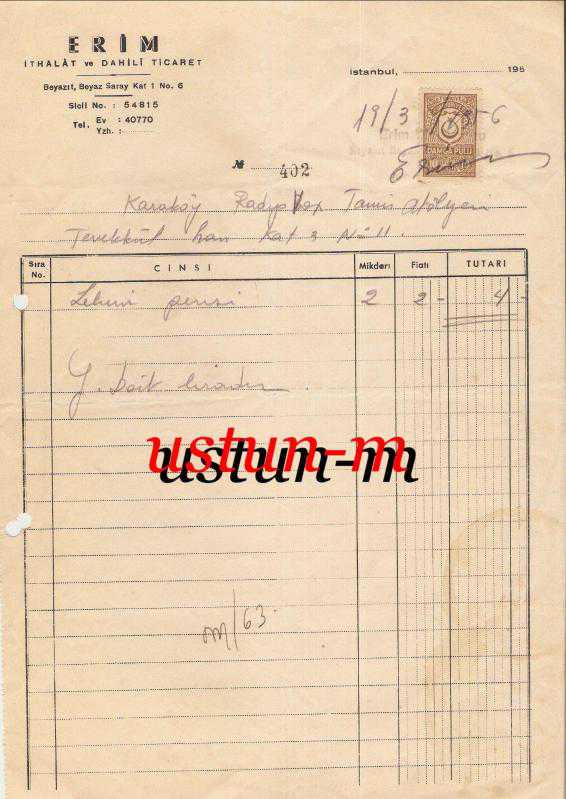 ERİM
İTHALÂT ve DAHİLÎ TİCARET
Beyazıt, Beyaz Saray Kat 1 No. 6
Sicil No. : 54815
Tel. Ev : 40770
Yzh. :
İstanbul, 195
19/3/1956
DAMGA PULU
№ 402
Karaköy Radyo Tamir atölyesi
Tevekkül han Kat 3 No 11.
Sıra No. CİNSİ Mikdarı Fiatı TUTARI
Lehim 2 2 - 4 -
Y. Sait
ustun-m
m/63.